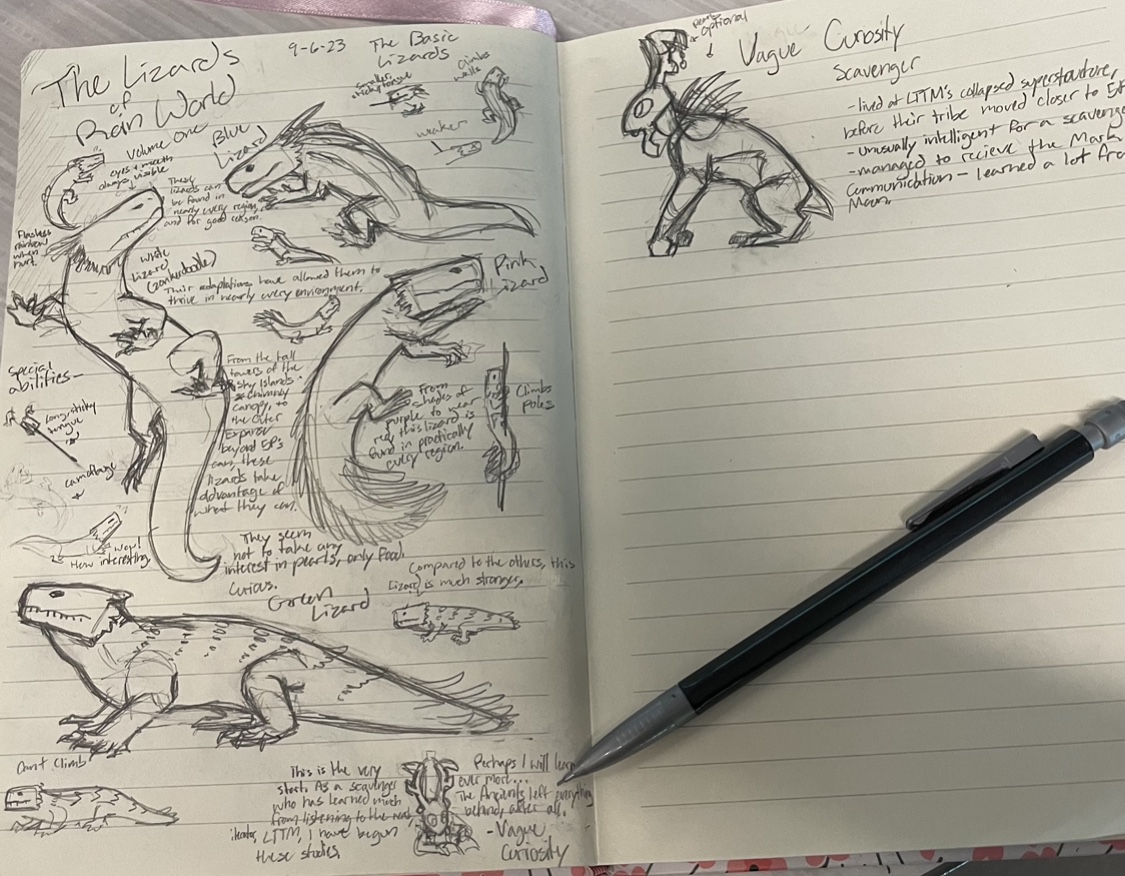 The Lizards
of
Rain World
Volume one
9-6-23
The Basic
Lizards
smaller
sticky tongue
climbs
walls
weaker
Blue
Lizard
eyes + mouth
always visible
These
lizards can
be found in
nearly every region,
and for good reason.
Flashes
rainbow
when
hurt.
White
Lizard
(zonkerdoodle)
Their adaptations have allowed them to
thrive in nearly every environment.
Pink
Lizard
Special
abilities-
long sticky
tongue
camouflage
wow!
How interesting.
From the tall
towers of the
Sky Islands
& Chimney
canopy, to
the Outer
Expanse
beyond EP's
can, these
lizards take
advantage of
what they can.
From
shades of
purple to near
red, this lizard is
found in practically
every region.
Climbs
poles
They seem
not to take any
interest in pearls, only food.
Curious.
Green
Lizard
Compared to the others, this
Lizard is much stronger.
Can't Climb
This is the very
start. As a scavenger
who has learned much
from listening to the
iterator, LTTM, I have begun
these studies.
Perhaps I will learn
ever more...
The Ancients left everything
behind, after all.
-Vague
Curiosity
optional
Vague Curiosity
Scavenger
-lived at LTTM's collapsed superstructure,
before their tribe moved closer to
-Unusually intelligent for a scavenger
-managed to recieve the Mark
Communication - learned a lot from
Moon.